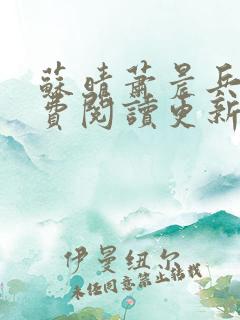 蘇晴蕭晨兵
費閱讀更新
伊曼紐尔
未经同意禁止转载